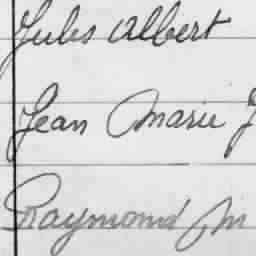 Jules Albert
Jean Marie J
Raymond